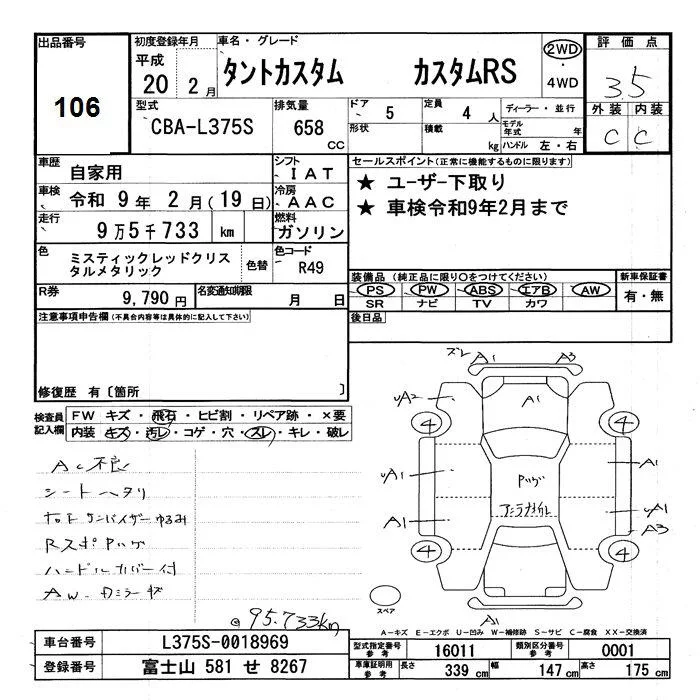 出品番号
106
初度登録年月
平成
20 2月
車名・グレード
タントカスタム カスタムRS
2WD
・
4WD
評価点
3.5
型式
CBA-L375S
排気量
658
CC
ドア 5
定員 4 人
ディーラー・並行
外装 内装
C C
形状
積載 kg
モデル年式 年
ハンドル 左・右
車歴 自家用
シフト
IAT
車検 令和 9年 2月(19日)
冷房
AAC
走行 9万5千733 km
燃料
ガソリン
色 ミスティックレッドクリスタルメタリック
色替
色コード
R49
R券 9,790円
名変通知期限 月 日
セールスポイント(正常に機能するものに限ります)
★ ユーザー下取り
★ 車検令和9年2月まで
装備品(純正品に限り○をつけてください)
新車保証書
PS PW ABS エアB AW
有・無
SR ナビ TV カワ
後日品
注意事項申告欄(不具合内容等は具体的に記入して下さい)
修復歴 有〔箇所 〕
検査員記入欄
FW キズ・飛石・ヒビ割・リペア跡・×要
内装 キズ・汚レ・コゲ・穴・スレ・キレ・破レ
AC不良
シートヘタリ
サンバイザーゆるみ
ハンドルカバー付
AW
@95.733km
ズレ A1 A3
A2 A1
4 4
A1 A1
A1 A1
A3
4 4
A1
スペア
A-キズ E-エクボ U-凹み W-補修跡 S-サビ C-腐食 XX-交換済
車台番号 L375S-0018969
登録番号 富士山 581 せ 8267
型式指定番号 参考 16011
類別区分番号 参考 0001
車庫証明用 参考 長さ 339 cm 幅 147 cm 高さ 175 cm